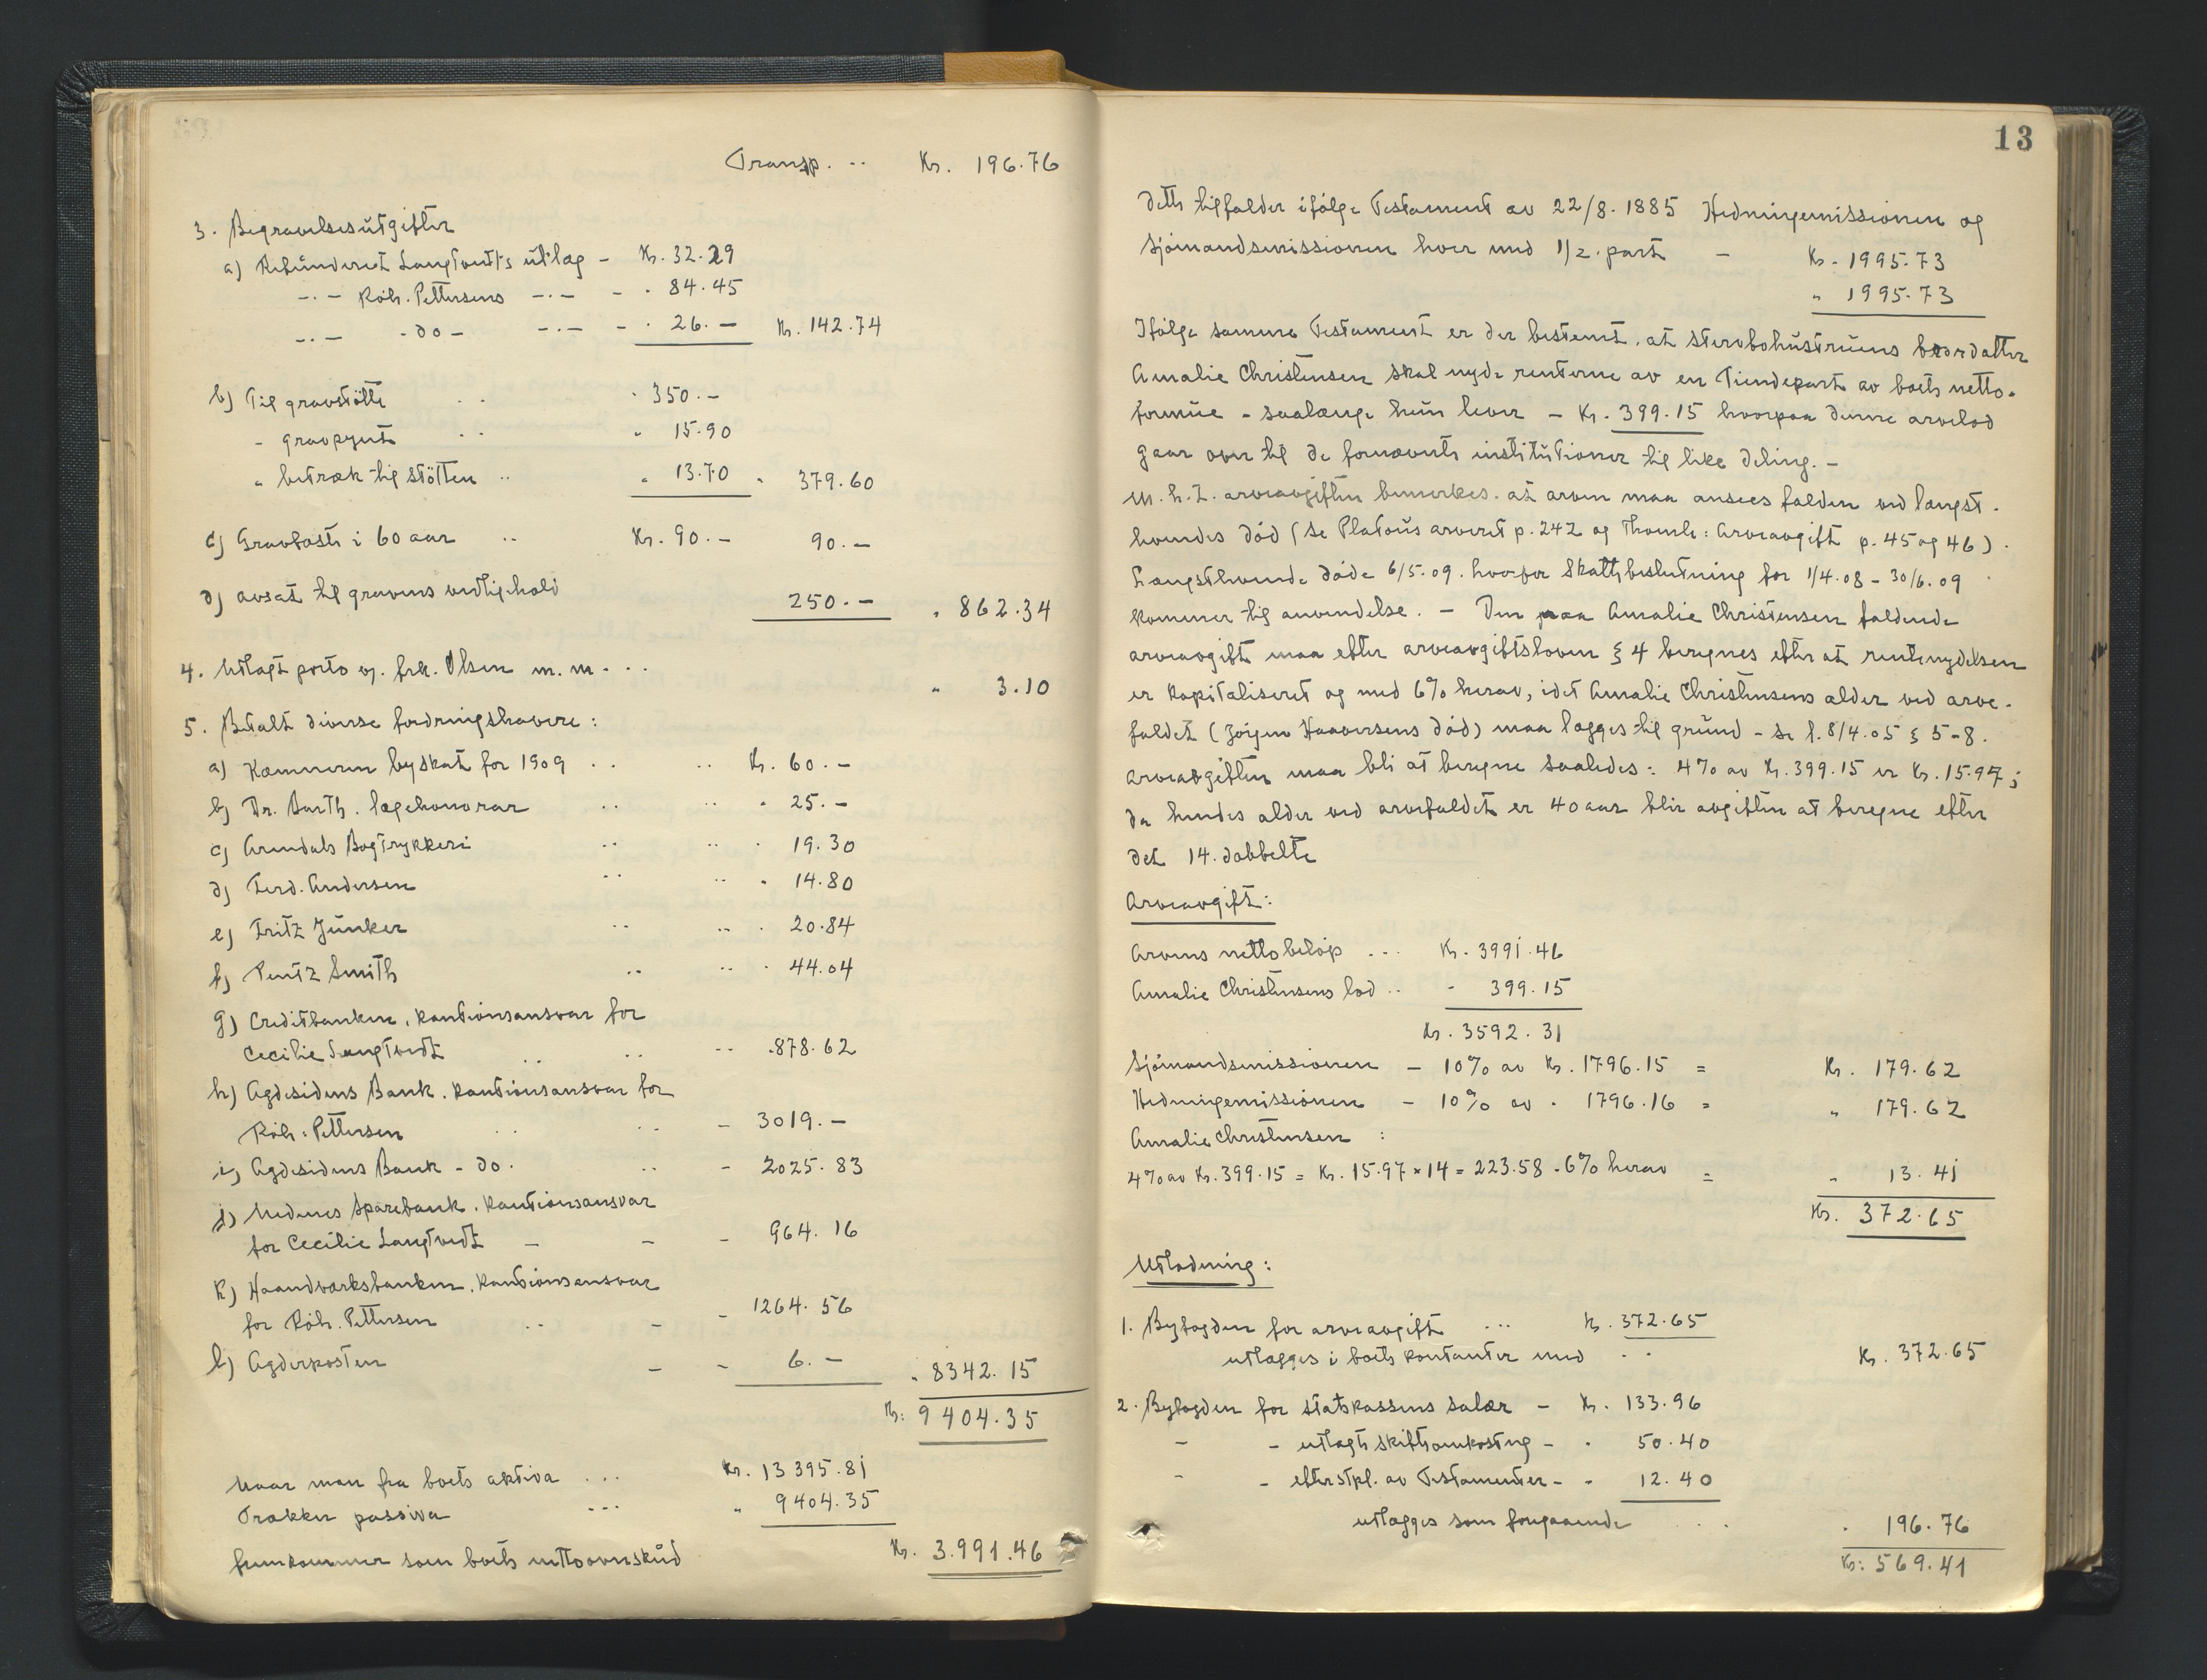 Transp. .. Kr. 196.76
3. Begravelsesutgifter
a) Refunderet Langtvedt's utlæg - Kr. 32.29
-.- Röh. Pettersens -.- - . 84.45
-.- -do- -.- - . 26.- Kr. 142.74
b) Til gravstötte .. . 350.-
- gravpynt .. . 15.90
" betræk til stötten .. " 13.70 " 379.60
c) Gravfæste i 60 aar .. Kr. 90.- 90.-
d) avsat til gravens vedlikehold 250.- " 862.34
4. Utlagt porto og frk. Olsen m. m. .. " 3.10
5. Betalt diverse fordringshavere:
a) Kæmneren byskat for 1909 .. .. Kr. 60.-
b) Dr. Barth. lægehonorar .. .. " 25.-
c) Arendals Bogtrykkeri .. .. . 19.30
d) Ferd. Andersen .. .. " 14.80
e) Fritz Junker .. .. . 20.84
f) Pentz Smith .. .. . 44.04
g) Creditbanken, kautionsansvar for
Cecilie Langtvedt .. .. .. . 878.62
h) Agdesidens Bank. kautionsansvar for
Röh: Pettersen .. .. - 3019.-
i) Agdesidens Bank - do. .. - 2025.83
j) Nedenes Sparebank. kautionsansvar
for Cecilie Langtvedt - - - 964.16
k) Haandværksbanken. kautionsansvar
for Röh. Pettersen .. - - 1264.56
l) Agderposten - - 6.- " 8342.15
Kr: 9404.35
Naar man fra boets aktiva ... Kr. 13395.81
Trækker passiva ... " 9404.35
fremkommer som boets nettooverskud Kr. 3.991.46
13
Dette tilfalder ifölge Testament av 22/8. 1885 Hedningemissionen og
Sjömandsmissionen hver med 1/2. part - Kr. 1995.73
" 1995.73
Ifölge samme Testament er der bestemt, at stervbohustruens brordatter
Amalie Christensen skal nyde renterne av en Tiendepart av boets netto-
formue - saalænge hun lever - Kr. 399.15 hvorpaa denne arvelod
gaar over til de fornævnte institutioner til like deling. -
M. h. t. arveavgiften bemerkes, at arven maa ansees falden ved længst-
levendes död (se Platous arveret p. 242 og Thomle: Arveavgift p. 45 og 46).
Længstlevende döde 6/5.09. hvorfor Skattebeslutning for 1/4.08 - 30/6.09
kommer til anvendelse. - Den paa Amalie Christensen faldende
arveavgift maa efter arveavgiftsloven § 4 beregnes efter at rentenydelsen
er kapitaliseret og med 6% herav, idet Amalie Christensens alder ved arve-
faldet (Jörgen Haaversens död) maa lægges til grund - se l. 8/4.05 § 5-8.
Arveavgiften maa bli at beregne saaledes: 4% av Kr. 399.15 er Kr. 15.97;
da hendes alder ved arvefaldet er 40 aar blir avgiften at beregne efter
det 14. dobbelte
Arveavgift:
Arvens nettobelöp ... Kr. 3991.46
Amalie Christensens lod .. - 399.15
Kr. 3592.31
Sjömandsmissionen - 10% av Kr. 1796.15 = Kr. 179.62
Hedningemissionen - 10% av " 1796.16 = " 179.62
Amalie Christensen :
4% av Kr. 399.15 = Kr. 15.97 × 14 = 223.58 - 6% herav = " 13.41
Kr. 372.65
Utlodning:
1. Byfogden for arveavgift ... Kr. 372.65
utlægges i boets kontanter med .. Kr. 372.65
2. Byfogden for statskassens salær - Kr. 133.96
- - utlagte skifteomkostng - . 50.40
- - efterstpl. av Testamenter - . 12.40
utlægges som foregaaende .. . 196.76
Kr: 569.41